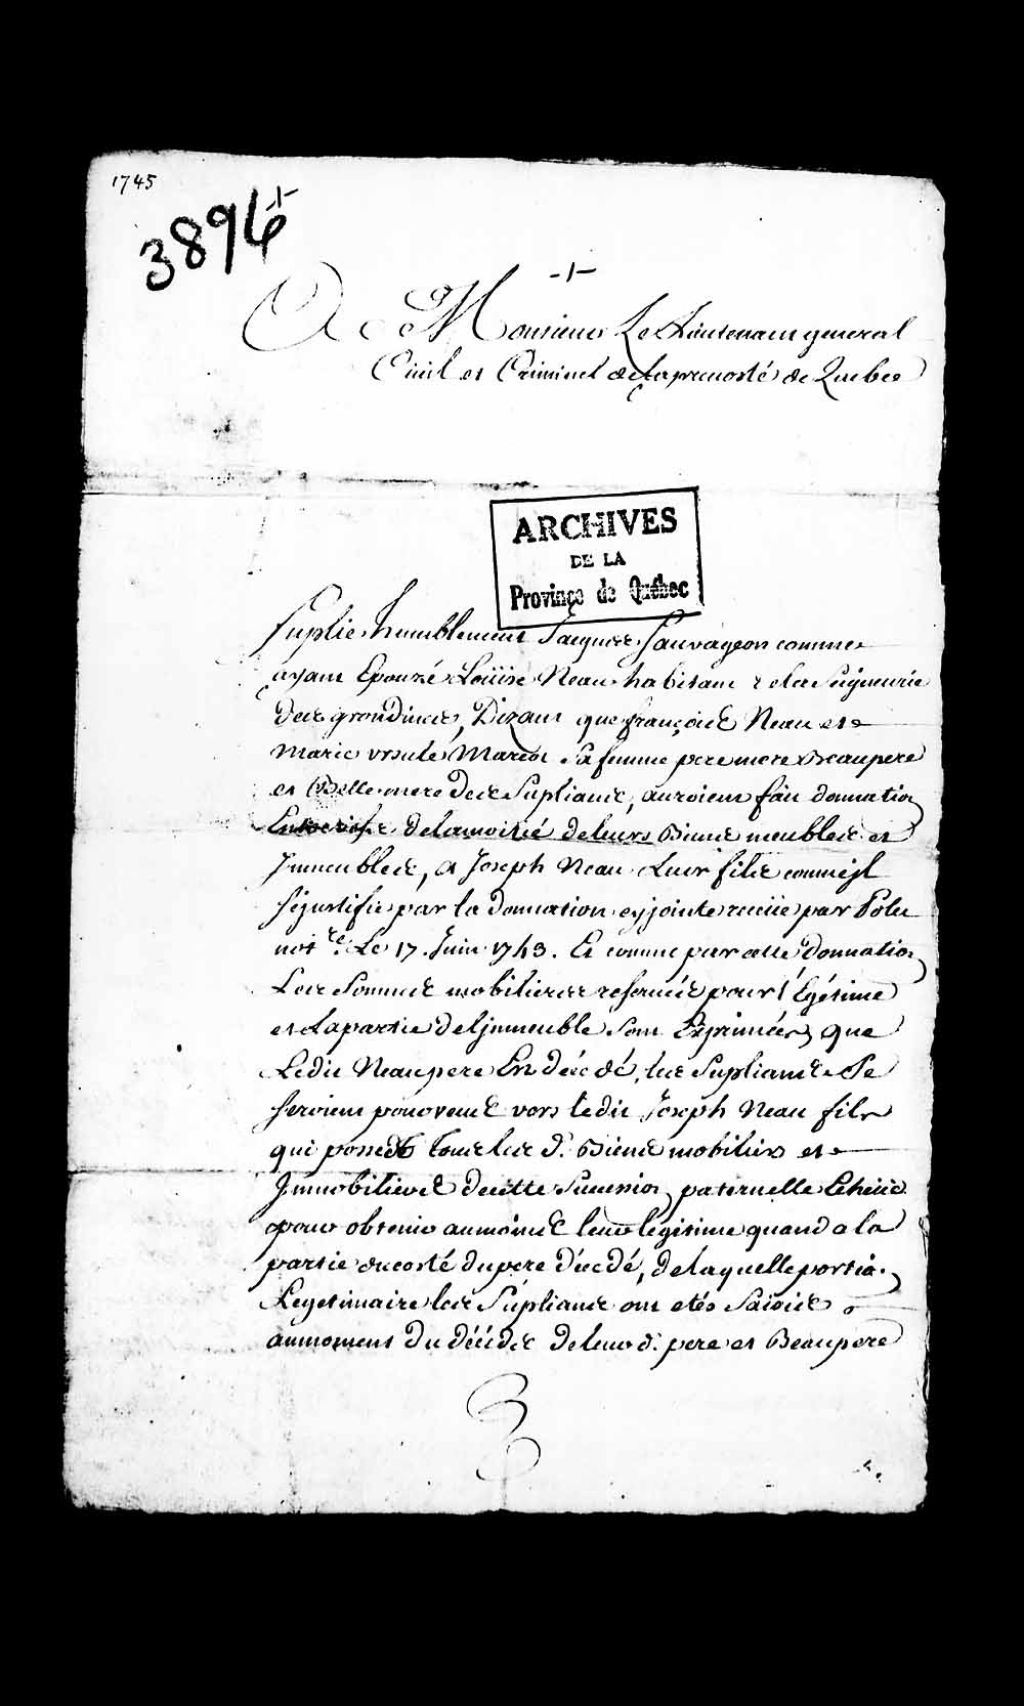 1745
3894
A Monsieur Le Lieutenant general
Civil et Criminel de la prevosté de Quebec
ARCHIVES
DE LA
Province de Québec
Suplie humblement Jacques Sauvageon comme
ayant Epouzé Loüise Neau habitant de la Seigneurie
des grondines, Dizant que françois Neau et
Marie ursule Marcot sa femme pere mere Beaupere
et Belle mere des Supliants, auroient fait donnation
de la moitié de leurs Biens meubles et
Immeubles, a Joseph Neau Leur fils comme jl
se justifie par la donnation cyjointe recüe par Polet
notre. Le 17. Juin 1743. Et comme par cette donnation
Les Sommes mobilieres reservées pour Légétime
et La partie de L'jmmeuble Sont Exprimées, que
Ledit Neau pere En décédé, les Supliants Se
seroient pourveus vers ledit Joseph Neau fils
qui possede tous les d. Biens mobiliers et
Immobiliers de cette Succession paternelle Echeüe
pour obtenir au moins leur legitime quand a la
partie du costé du pere décédé, de laquelle portion
Legetimaire les Supliants ont etés Saisies
au moment du décéds de leur d. pere et Beaupere